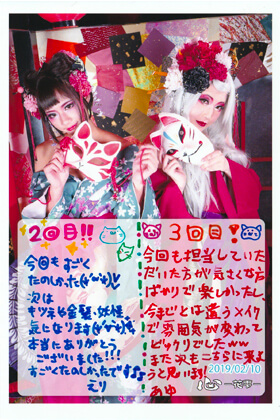 2回目!!
今回もすごく
たのしかった(*'▽'*)♡
次は
キツネや金髪・妖怪
気になります(*'▽'*)
本当にありがとう
ございました!!!
すごくたのしかったです♪♪
えり
3回目!
今回も担当していた
だいた方が元さくな方
ばかりで楽しかったし、
今までとは違うメイク
で雰囲気が変わって
ビックリでしたww
また次もこちらに来よ
うと思います!
あゆ
2019/02/10
心-花雫-